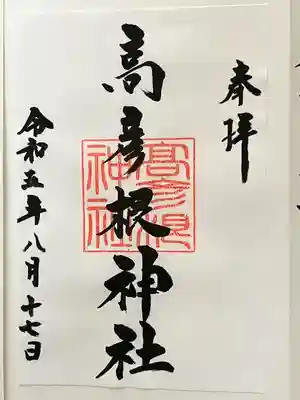 奉拝
高彦根神社
高彦根
神社
令和五年八月十七日